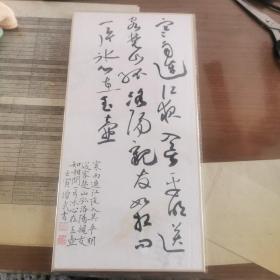 寒雨連江夜入吴平明送
客楚山孤洛陽親友如相問
一片冰心在玉壺
寒雨連江夜入吴平明
送客楚山孤洛陽親友
如相問一片冰心在玉壺
書